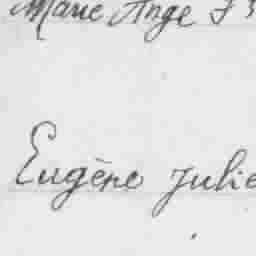 Marie Ange F 3
Eugène Julie